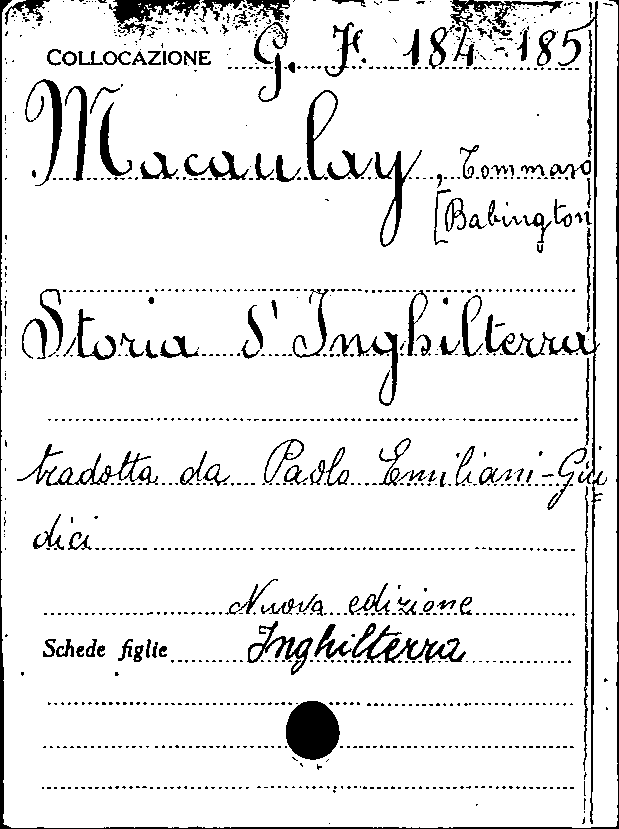 COLLOCAZIONE G. F. 184-185
Macaulay, Tommaso
[Babington
Storia d'Inghilterra
tradotta da Paolo Emiliani-Giu=
dici
Nuova edizione
Schede figlie Inghilterra